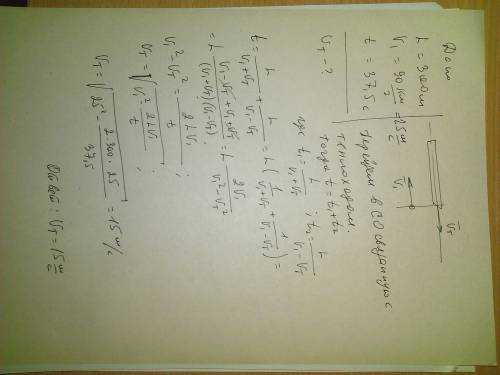 Дано
L = 300м
V₁ = 90 км/г = 25 м/с
t = 37,5 с
Vт - ?
V̄₁
V̄т
перейдем в СО связанную с
теплоходом.
тогда t = t₁ + t₂
где t₁ = L/(V₁+Vт) ; t₂ = L/(V₁-Vт)
t = L/(V₁+Vт) + L/(V₁-Vт) = L(1/(V₁+Vт) + 1/(V₁-Vт)) =
= L (V₁-Vт+V₁+Vт)/((V₁+Vт)(V₁-Vт)) = L 2V₁/(V₁²-Vт²)
V₁²-Vт² = 2LV₁/t ;
Vт = √(V₁² - 2LV₁/t) ;
Vт = √(25² - 2·300·25/37,5) = 15 м/с
Ответ: Vт = 15 м/с